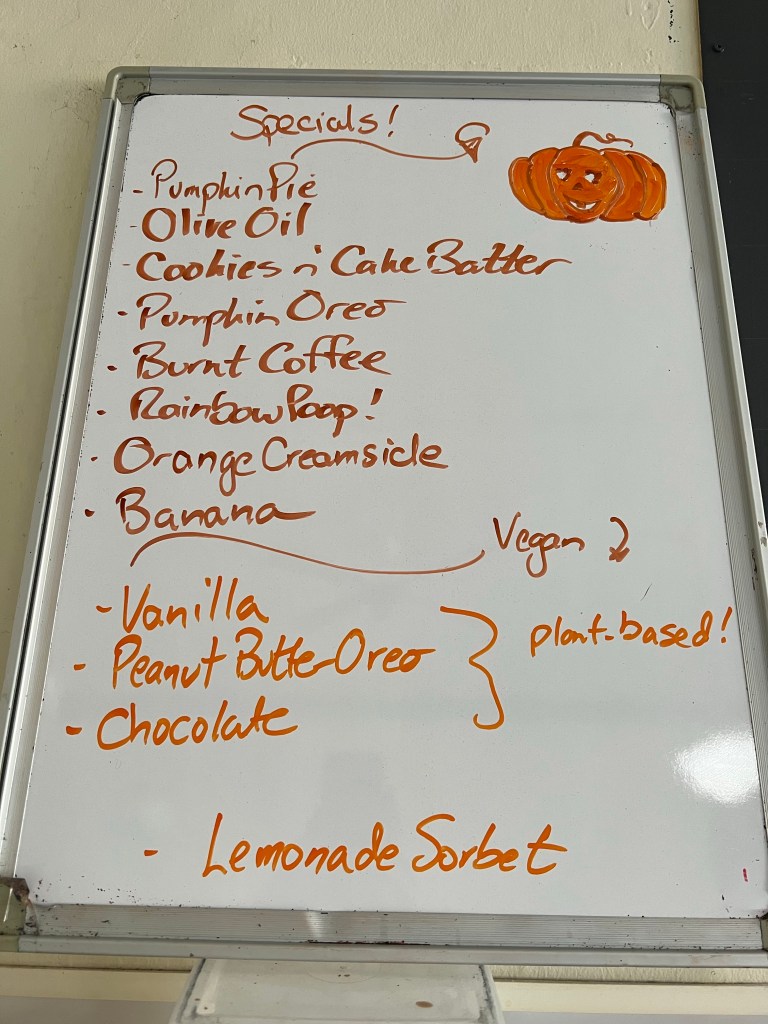 Specials!
- Pumpkin Pie
- Olive Oil
- Cookies n' Cake Batter
- Pumpkin Oreo
- Burnt Coffee
- Rainbow Poop!
- Orange Creamsicle
- Banana
Vegan
- Vanilla
plant-based!
- Peanut Butter Oreo
- Chocolate
- Lemonade Sorbet